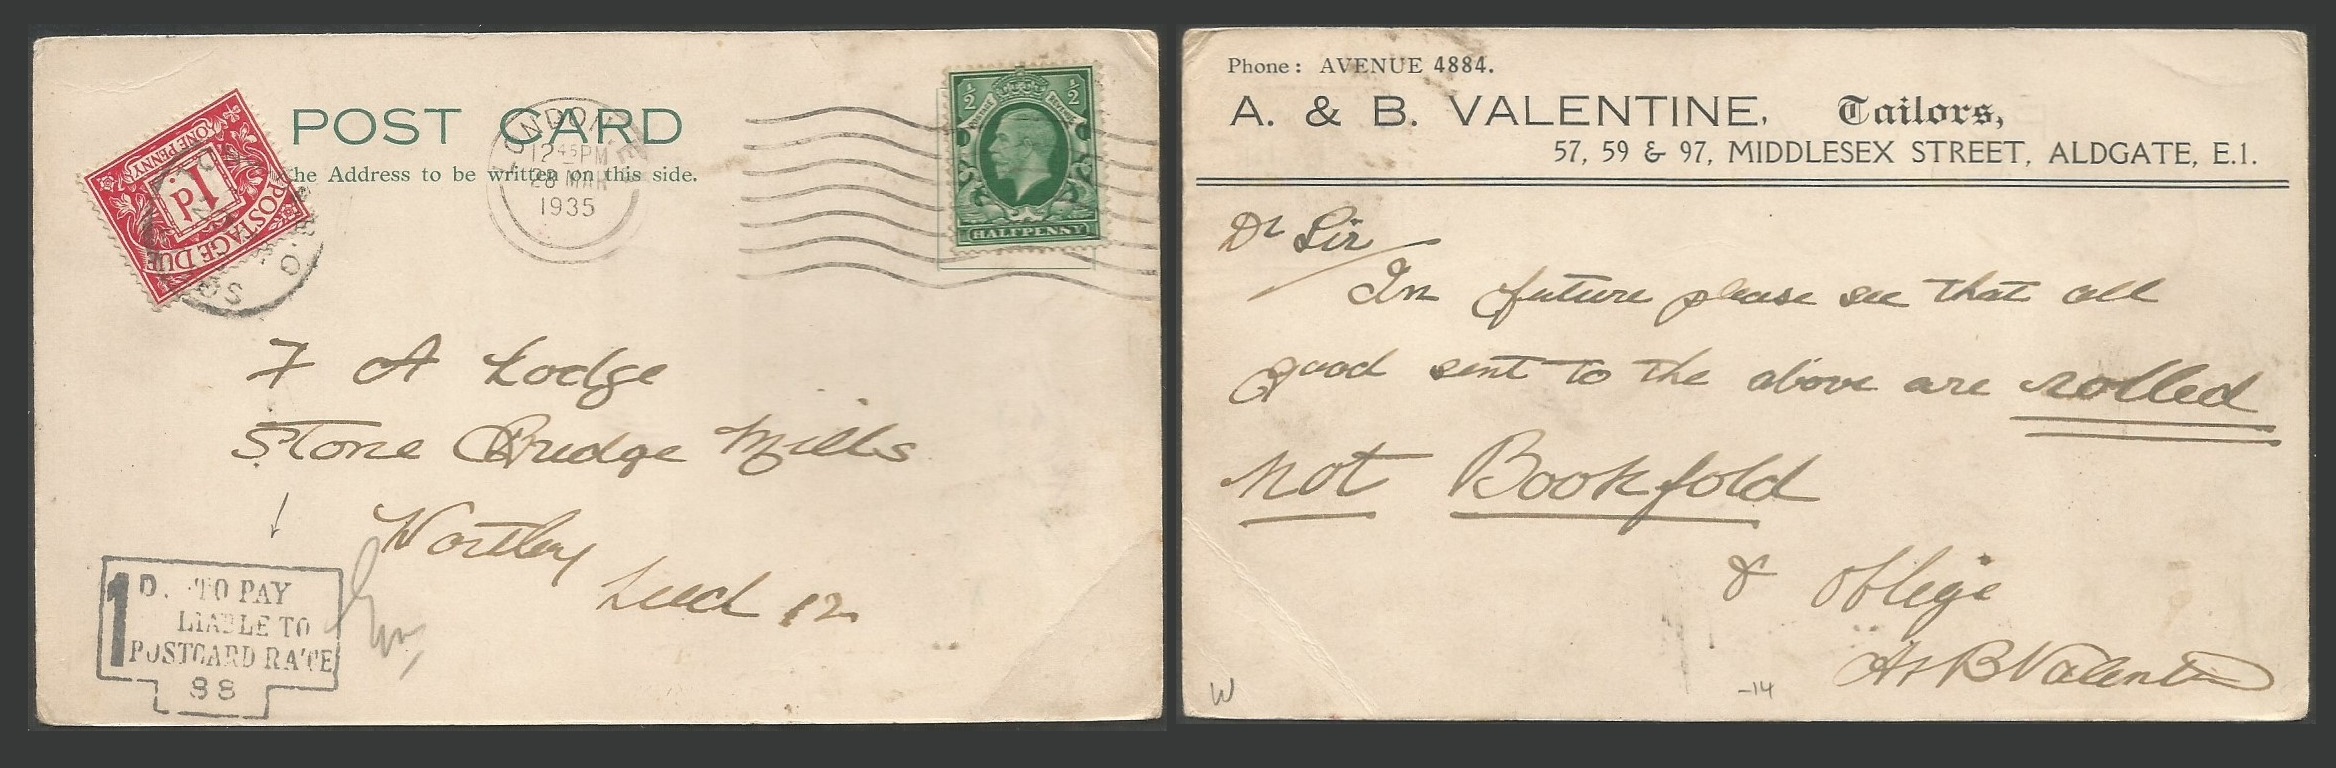 POST CARD
he Address to be written on this side.
POSTAGE DUE
ONE PENNY
1d.
LONDON
12 45 PM
28 MAR
1935
½ ½
POSTAGE REVENUE
HALFPENNY
7 A Lodge
Stone Bridge Mills
Wortley
Leed 12
1D. TO PAY
LIABLE TO
POSTCARD RATE
88
Phone: AVENUE 4884.
A. & B. VALENTINE, Tailors,
57, 59 & 97, MIDDLESEX STREET, ALDGATE, E.1.
Dr Sir
In future please see that all
good sent to the above are rolled
not Bookfold
& oblige
A & B Valentine
W
-14